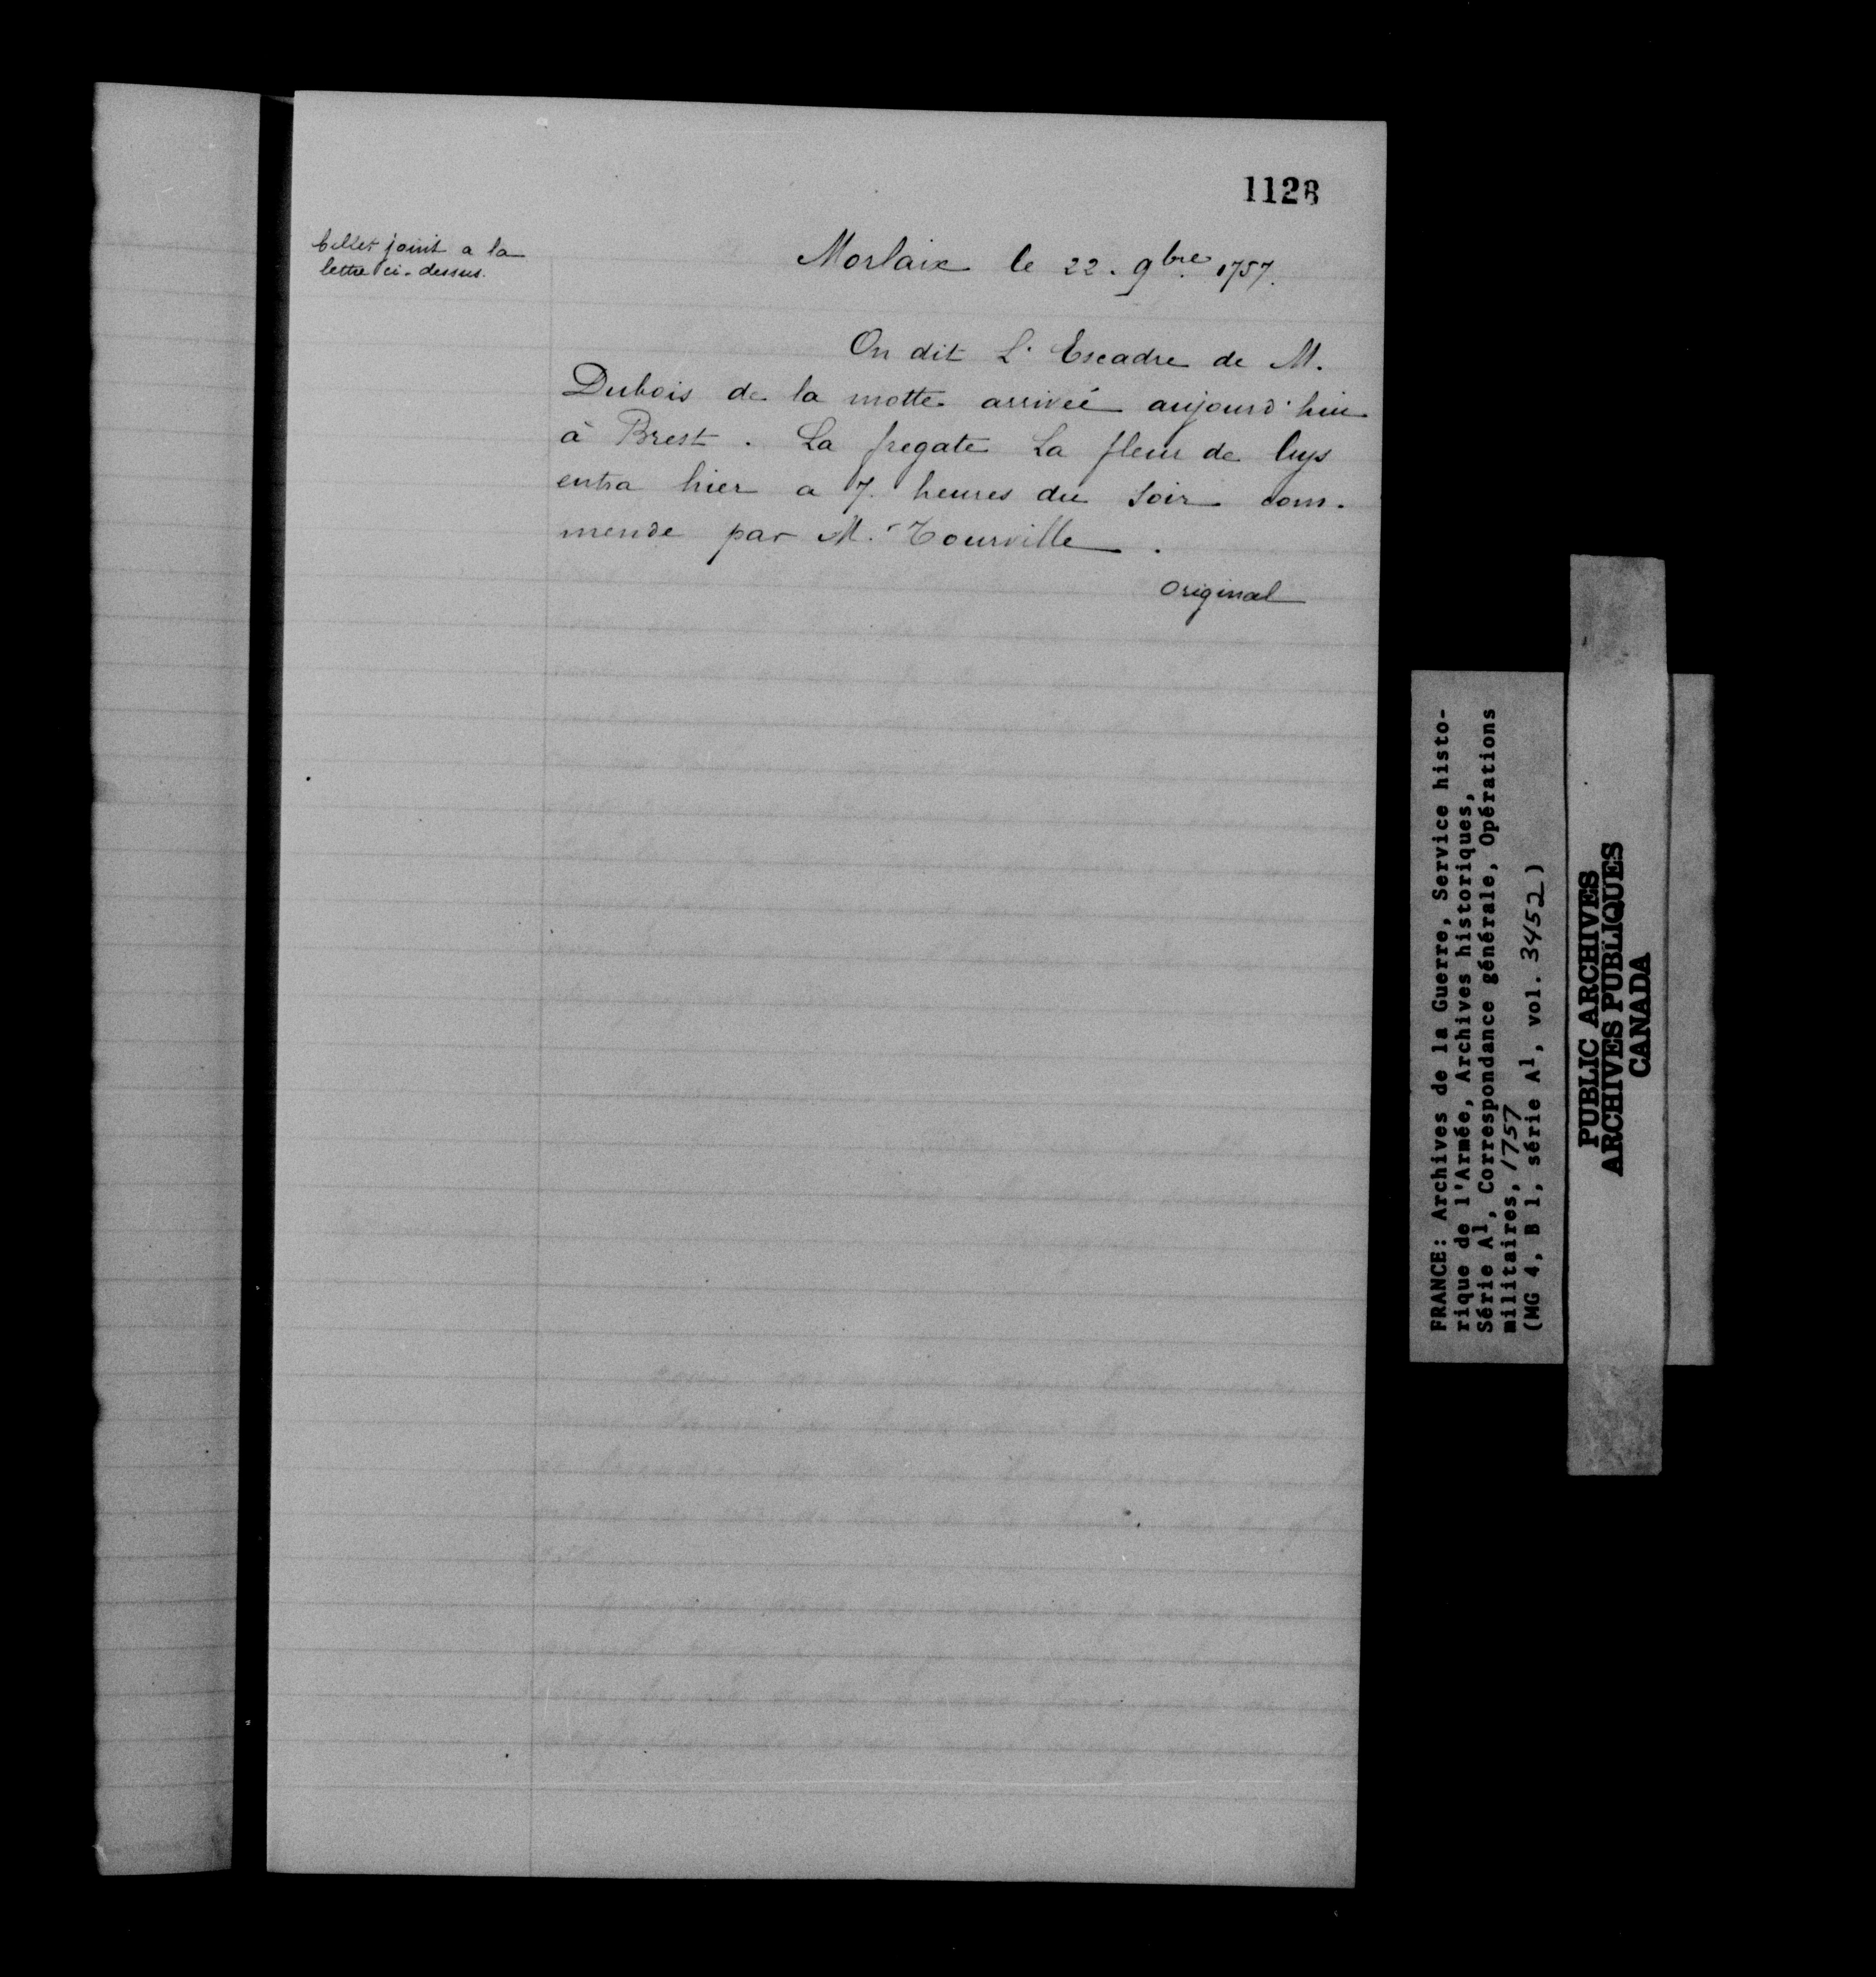 1128
billet joint a la
lettre ci-dessus.
Morlaix le 22. 9bre 1757.
On dit L'Escadre de M.
Dubois de la motte arrivée aujourd'hui
à Brest. La fregate La fleur de lys
entra hier a 7. heures du soir com-
mendé par M. Tourville.
Original
FRANCE: Archives de la Guerre, Service histo-
rique de l'Armée, Archives historiques,
Série A1, Correspondance générale, Opérations
militaires, 1757
(MG 4, B 1, série A1, vol. 3452)
PUBLIC ARCHIVES
ARCHIVES PUBLIQUES
CANADA